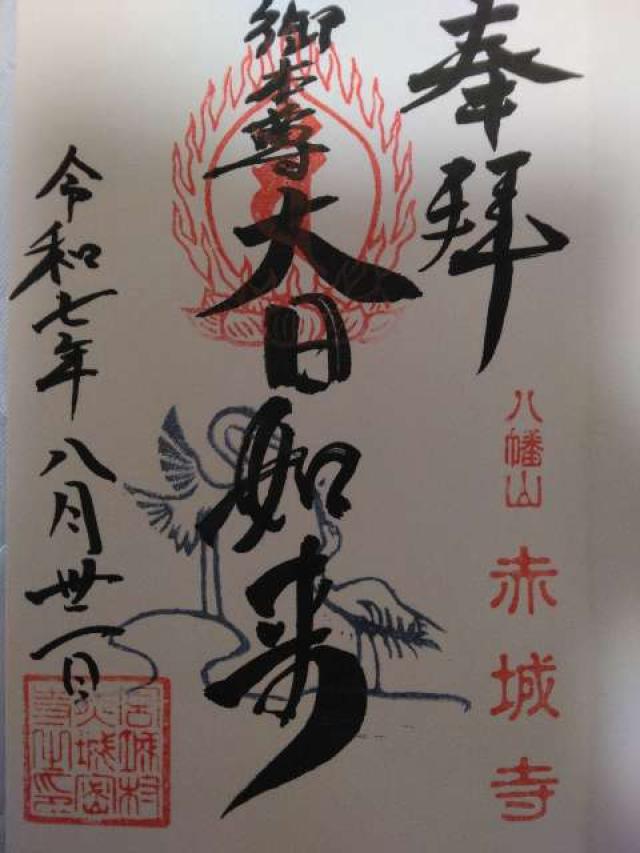 奉拝
八幡山 赤城寺
御本尊 大日如来
令和七年八月卅一日